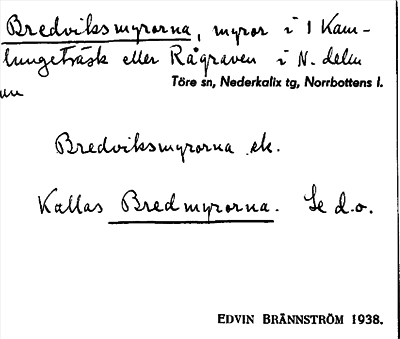 Bredviksmyrorna, myror i 1 Kam-
lungeträsk eller Rågraven i N. delen
Töre sn, Nederkalix tg, Norrbottens l.
Bredviksmyrorna ek.
Kallas Bredmyrorna. Se d.o.
EDVIN BRÄNNSTRÖM 1938.